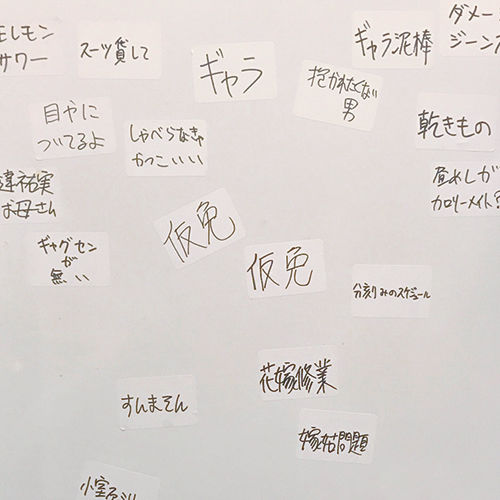 サワー
スーツ貸して
ギャラ
ギャラ泥棒
ダメー
ジーンズ
抱かれたくない
男
目やに
ついてるよ
しゃべらなきゃ
かっこいい
乾きもの
祐実
お母さん
昼めしが
カロリーメイト
仮免
仮免
ギャグセン
が
無い
分刻みのスケジュール
花嫁修業
すんません
嫁姑問題
小室